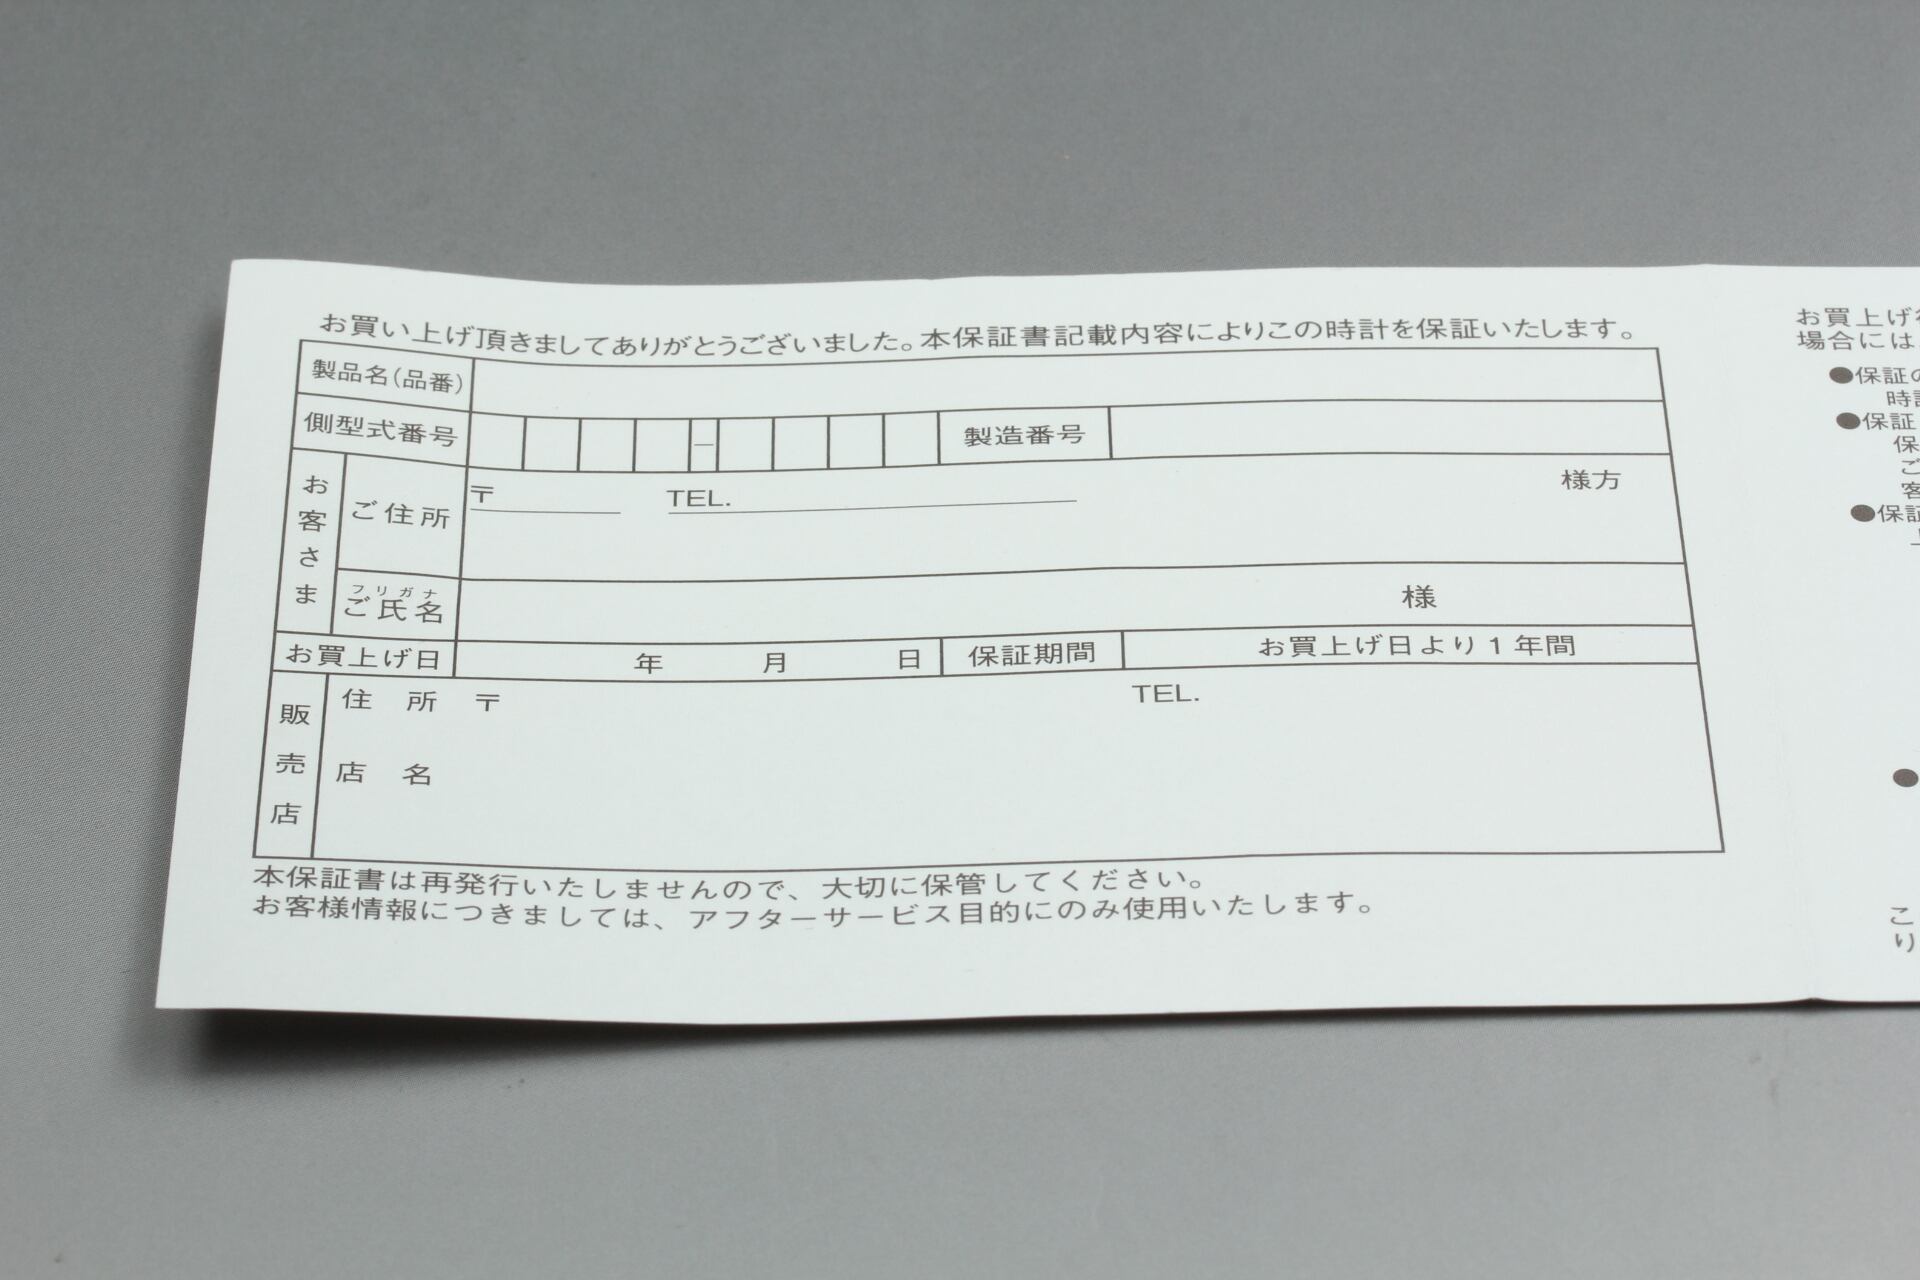 お買い上げ頂きましてありがとうございました。本保証書記載内容によりこの時計を保証いたします。
製品名(品番)
側型式番号 － 製造番号
お客さま
ご住所 〒 TEL. 様方
フリガナ
ご氏名 様
お買上げ日 年 月 日 保証期間 お買上げ日より1年間
販売店
住所 〒 TEL.
店名
本保証書は再発行いたしませんので、大切に保管してください。
お客様情報につきましては、アフターサービス目的にのみ使用いたします。
お買上げ
場合には
●保証の
時
●保証
保
ご
客
●保証
●
こ
り